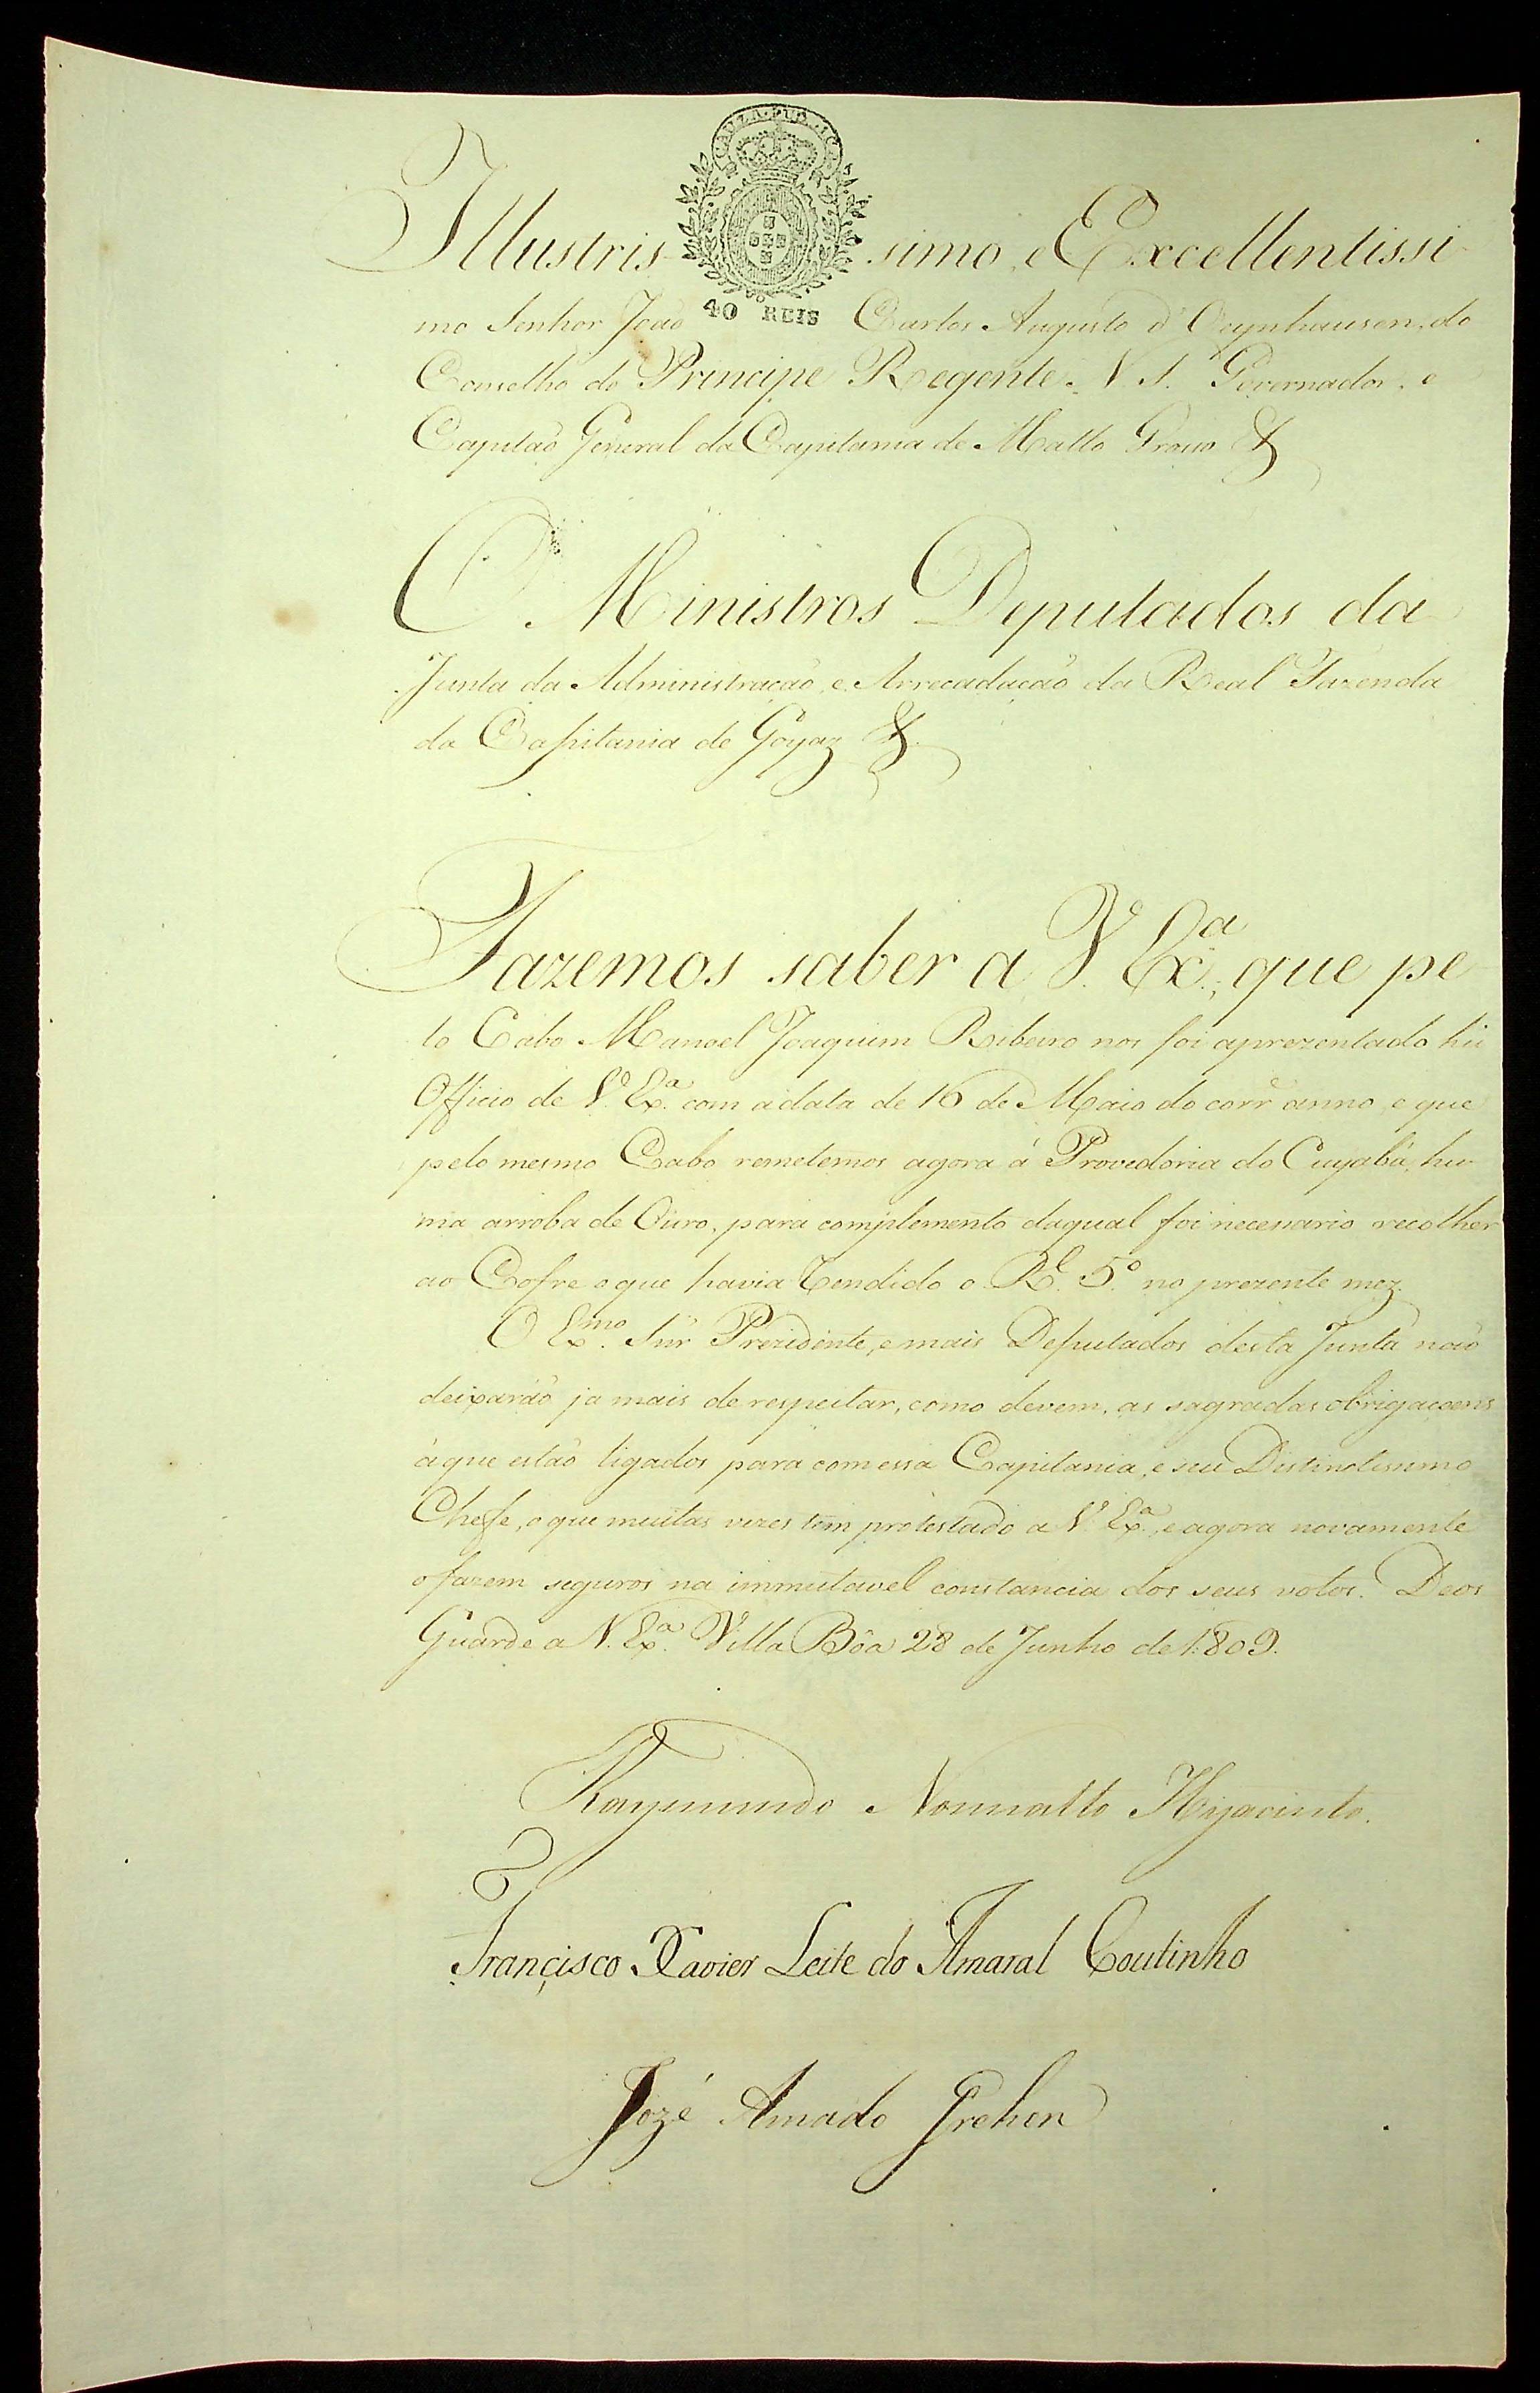 CAUZA PUBLICA
Illustris- simo, e Excellentissi-
mo Senhor João 40 REIS Carlos Augusto d'Oeynhausen, do
Conselho do Principe Regente N. S. Governador, e
Capitaõ General da Capitania de Matto Grosso &
Os Ministros Deputados da
Junta da Administraçaõ, e Arrecadaçaõ da Real Fazenda
da Capitania de Goyaz &.
Fazemos saber a V. Ex.ª, que pe-
lo Cabo Manoel Joaquim Ribeiro nos foi aprezentado hũ
Officio de V. Ex.ª com a data de 16 de Maio do corr.e anno, e que
pelo mesmo Cabo remetemos agora á Provedoria do Cuyabá, hu-
ma arroba de Ouro, para complemento daqual foi necessario recolher
ao Cofre o que havia rendido o R.l 5.º no prezente mez.
O Ex.mo Snr Prezidente, e mais Deputados desta Junta naõ
deixaráõ ja mais de respeitar, como devem, as sagradas obrigaçoens
áque estaõ ligados para com essa Capitania, e seu Distinctissimo
Chefe, o que muitas vezes tem protestado a V. Ex.ª, e agora novamente
o fazem seguros na immutavel constancia dos seus votos. Deos
Guarde a V. Ex.ª Villa Bôa 28 de Junho de 1809.
Raymundo Nonnatto Hyacinto.
Francisco Xavier Leite do Amaral Coutinho
Jozé Amado Grehon